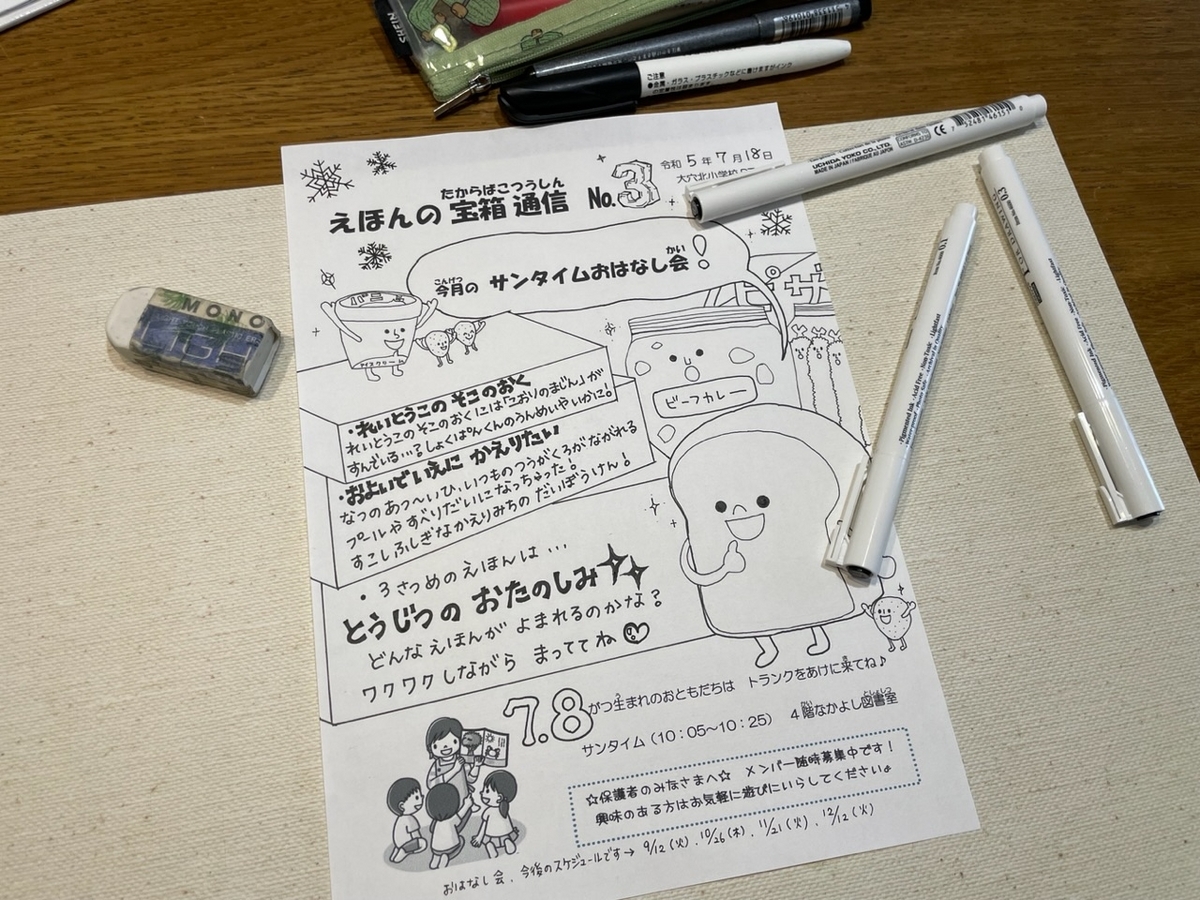 SHEIN
ご注意
令和5年7月18日
大穴北小学校
たからばこつうしん
えほんの 宝箱 通信 No.3
こんげつ かい
今月の サンタイムおはなし会!
MONO
アイスクリーム
ビーフカレー
・れいとうこの そこのおく
れいとうこの そこのおくには「こおりのまじん」が
すんでいる…?しょくぱんくんのうんめいやいかに!
・およいで いえに かえりたい
なつのあつ〜いひ、いつものつうがくろがながれる
プールや すべりだいになっちゃった!
すこし ふしぎなかえりみちの だいぼうけん!
・3さつめのえほんは…
とうじつの おたのしみ
どんなえほんが よまれるのかな?
ワクワクしながら まっててね
7.8がつ生まれのおともだちは トランクをあけに来てね♪
サンタイム(10:05〜10:25) 4階なかよし図書室
☆保護者のみなさまへ☆ メンバー随時募集中です!
興味のある方はお気軽に遊びにいらしてください♪
おはなし会、今後のスケジュールです→ 9/12(火)、10/26(木)、11/21(火)、12/12(火)
UCHIDA YOKO CO.,LTD.
MADE IN JAPAN / FABRIQUE AU JAPON
CE
0.3
0.1